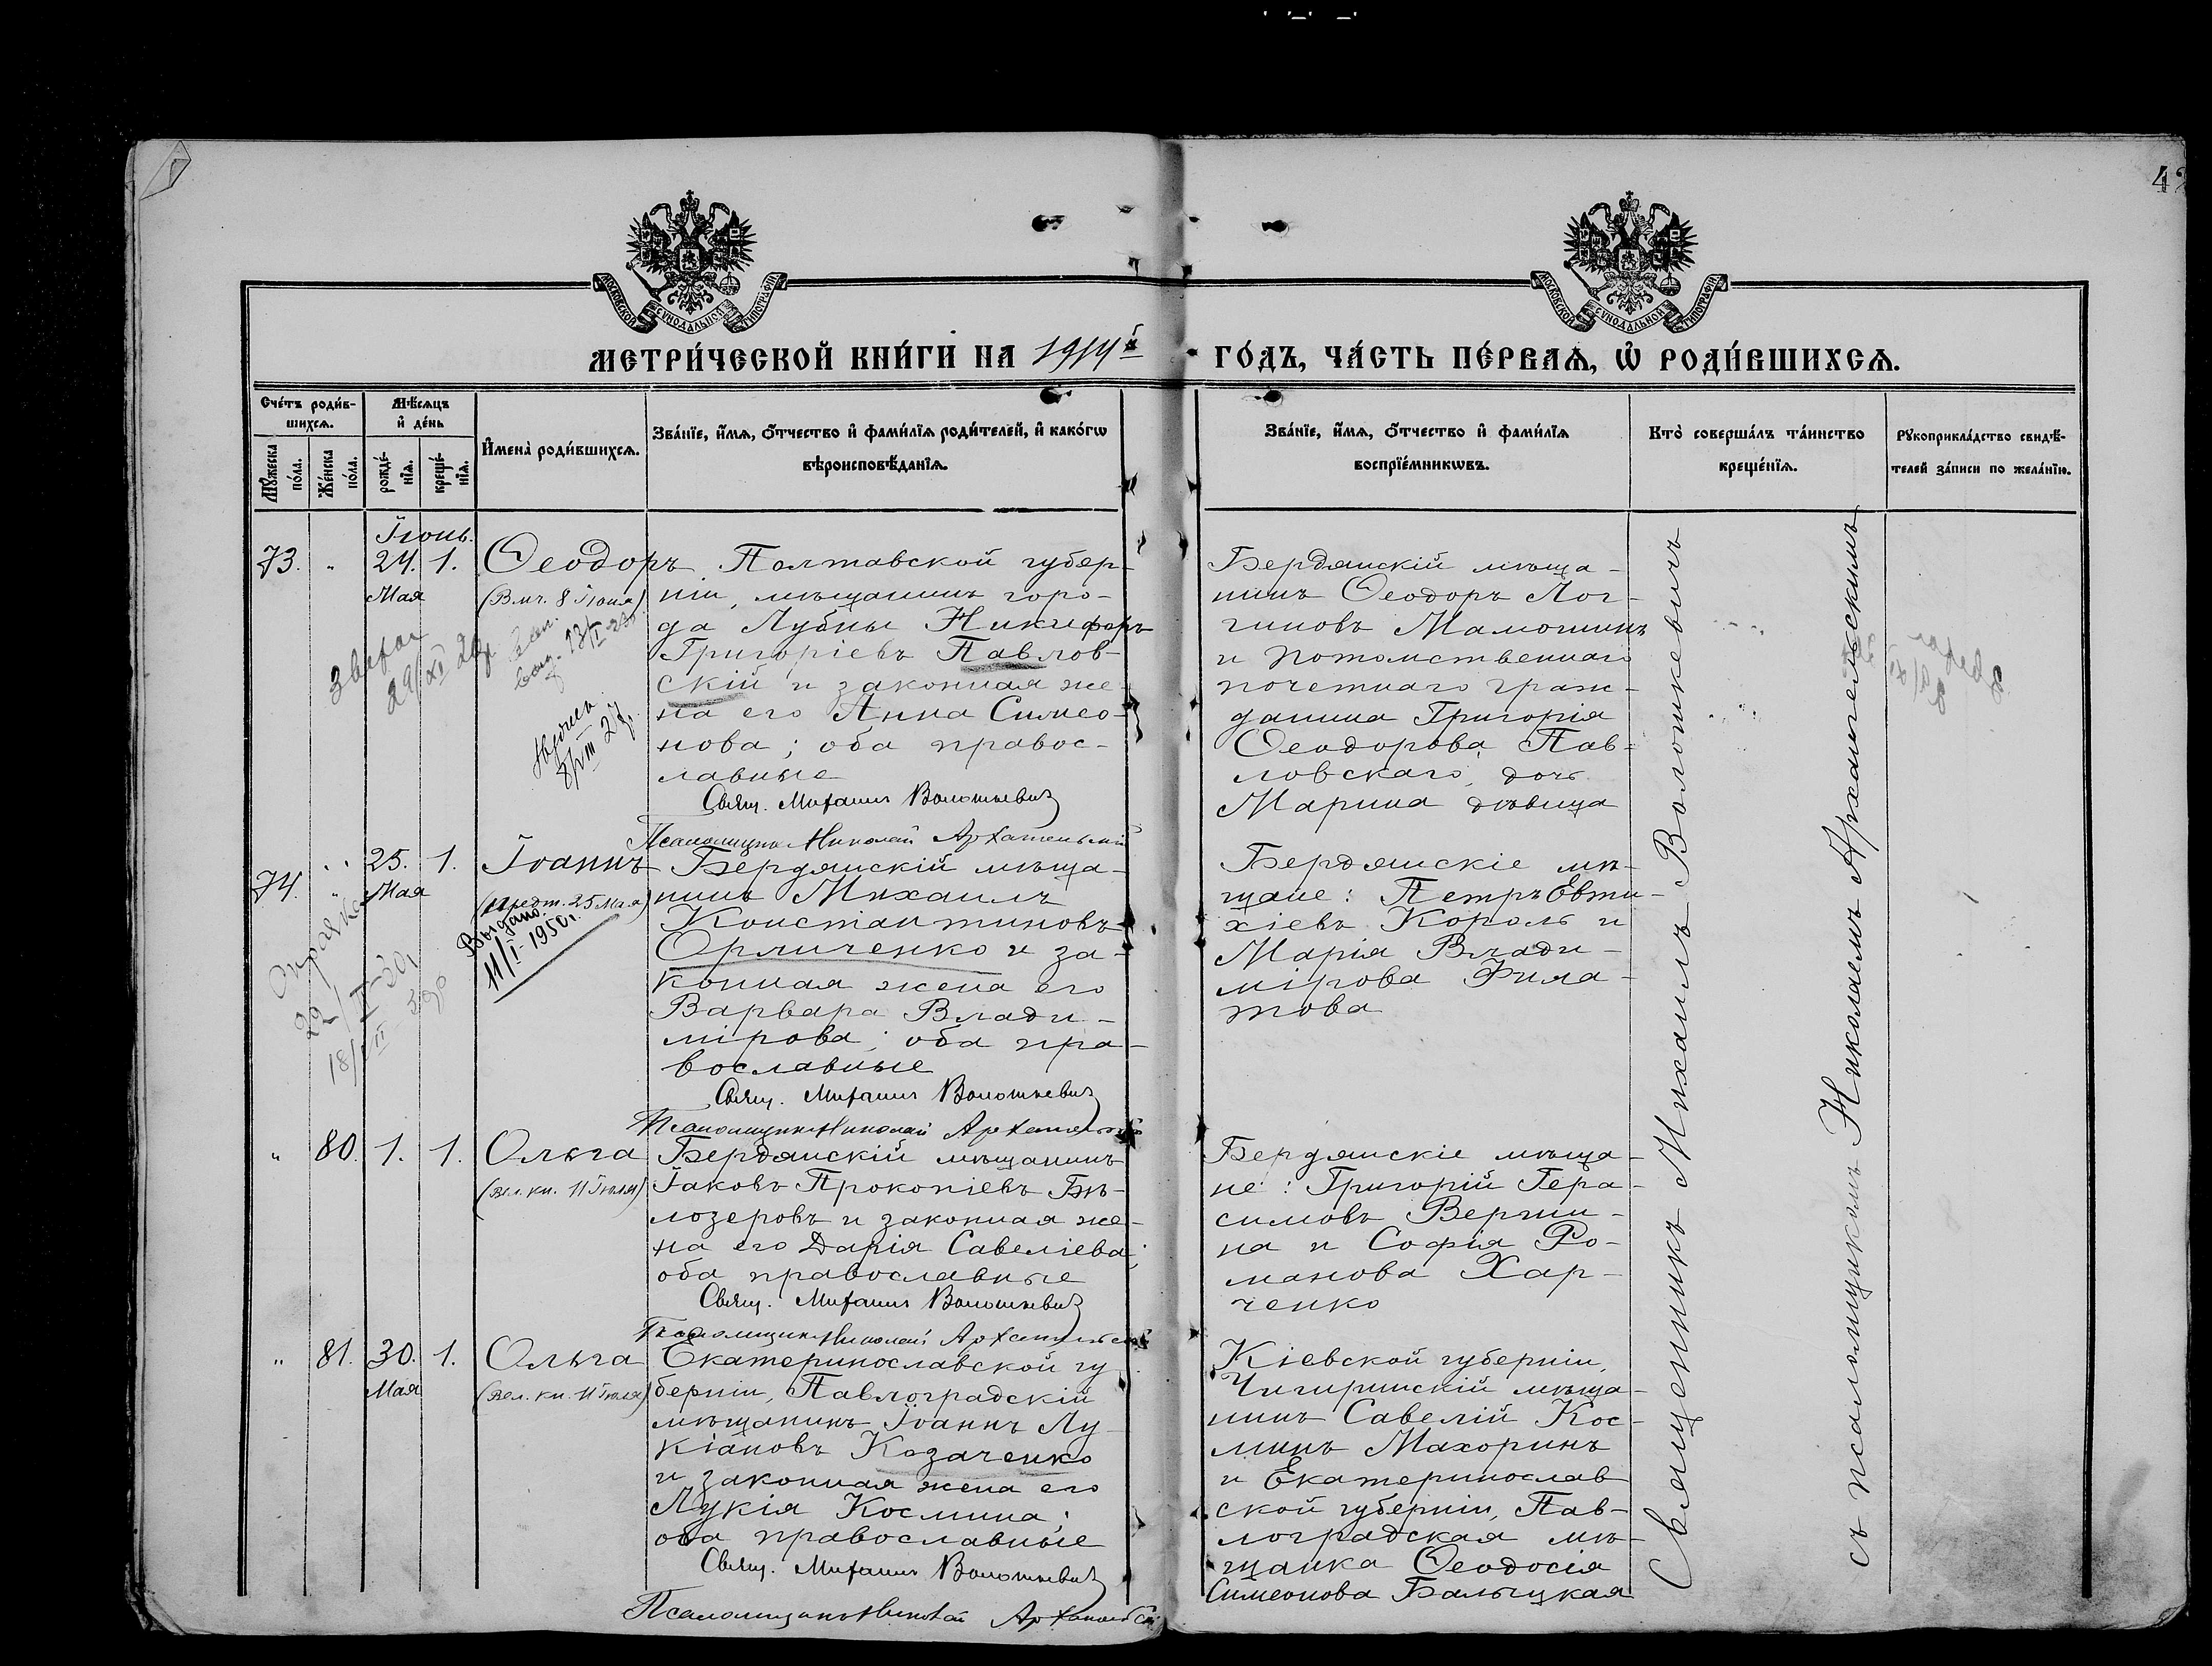 42
МОСКОВСКОЙ СѴНОДАЛЬНОЙ ТИПОГРАФІИ
МОСКОВСКОЙ СѴНОДАЛЬНОЙ ТИПОГРАФІИ
МЕТРИ́ЧЕСКОЙ КНИ́ГИ НА 1914й ГО́ДЪ, ЧА́СТЬ ПЕ́РВАѦ, Ѡ҆ РОДИ́ВШИХСѦ.
Сче́тъ роди́в-
шихсѧ.
Мѣ́сѧцъ
и҆ де́нь
Мꙋ́жеска
по́ла.
Же́нска
по́ла.
рожде́-
нїѧ.
креще́-
нїѧ.
И҆мена̀ роди́вшихсѧ.
Зва́нїе, и҆́мѧ, ѻ҆́тчество и҆ фами́лїѧ роди́телей, и҆ како́гѡ
вѣроисповѣ́данїѧ.
Зва́нїе, и҆́мѧ, ѻ҆́тчество и҆ фами́лїѧ
воспрїе́мникѡвъ.
Кто̀ соверша́лъ та́инство
креще́нїѧ.
Рꙋкоприкла́дство свидѣ́-
телей за́писи по жела́нїю.
Іюнь.
73. " 24. 1. Ѳеодоръ
Мая (Влмч. 8 Іюня)
Полтавской губер-
ніи, мѣщанинъ горо-
да Лубны Никифоръ
Григоріевъ Павлов-
скій и законная же-
на его Анна Симео-
нова; оба правос-
лавные
Свящ. Михаилъ Волошкевичъ
Псаломщикъ Николай Архангельскій
Бердянскій мѣща-
нинъ Ѳеодоръ Лог-
гиновъ Мамошинъ
и потомственнаго
почетнаго граж-
данина Григорія
Ѳеодорова Пав-
ловскаго, дочь
Марина дѣвица
74. " 25. 1. Іоаннъ
Мая (Предт. 25 Мая)
Выдано.
11/I-1950г.
Справка
Бердянскій мѣща-
нинъ Михаилъ
Константиновъ
Орличенко и за-
конная жена его
Варвара Влади-
мірова; оба пра-
вославные
Свящ. Михаилъ Волошкевичъ
Псаломщикъ Николай Архангельскій
Бердянскіе мѣ-
щане: Петръ Евти-
хіевъ Король и
Марія Влади-
мірова Фила-
това
" 80. 1. 1. Ольга
(вел. кн. 11 Іюля)
Бердянскій мѣщанинъ
Іаковъ Прокопіевъ Бѣ-
лозеровъ и законная же-
на его Дарія Савеліева;
оба православные
Свящ. Михаилъ Волошкевичъ
Псаломщикъ Николай Архангельскій
Бердянскіе мѣща-
не: Григорій Гера-
симовъ Верши-
на и Софія Ро-
манова Хар-
ченко
" 81. 30. 1. Ольга
Мая (Вел. кн. 11 Іюля)
Екатеринославской гу-
берніи, Павлоградскій
мѣщанинъ Іоаннъ Лу-
кіановъ Козаченко
и законная жена его
Лукія Космина;
оба православные
Свящ. Михаилъ Волошкевичъ
Псаломщикъ Николай Архангельскій
Кіевской губерніи,
Чигиринскій мѣща-
нинъ Савелій Кос-
минъ Махоринъ
и Екатеринослав
ской губерніи, Пав-
лоградская мѣ-
щанка Ѳеодосія
Симеонова Балыцкая
Священникъ Михаилъ Волошкевичъ
съ псаломщикомъ Николаемъ Архангельскимъ